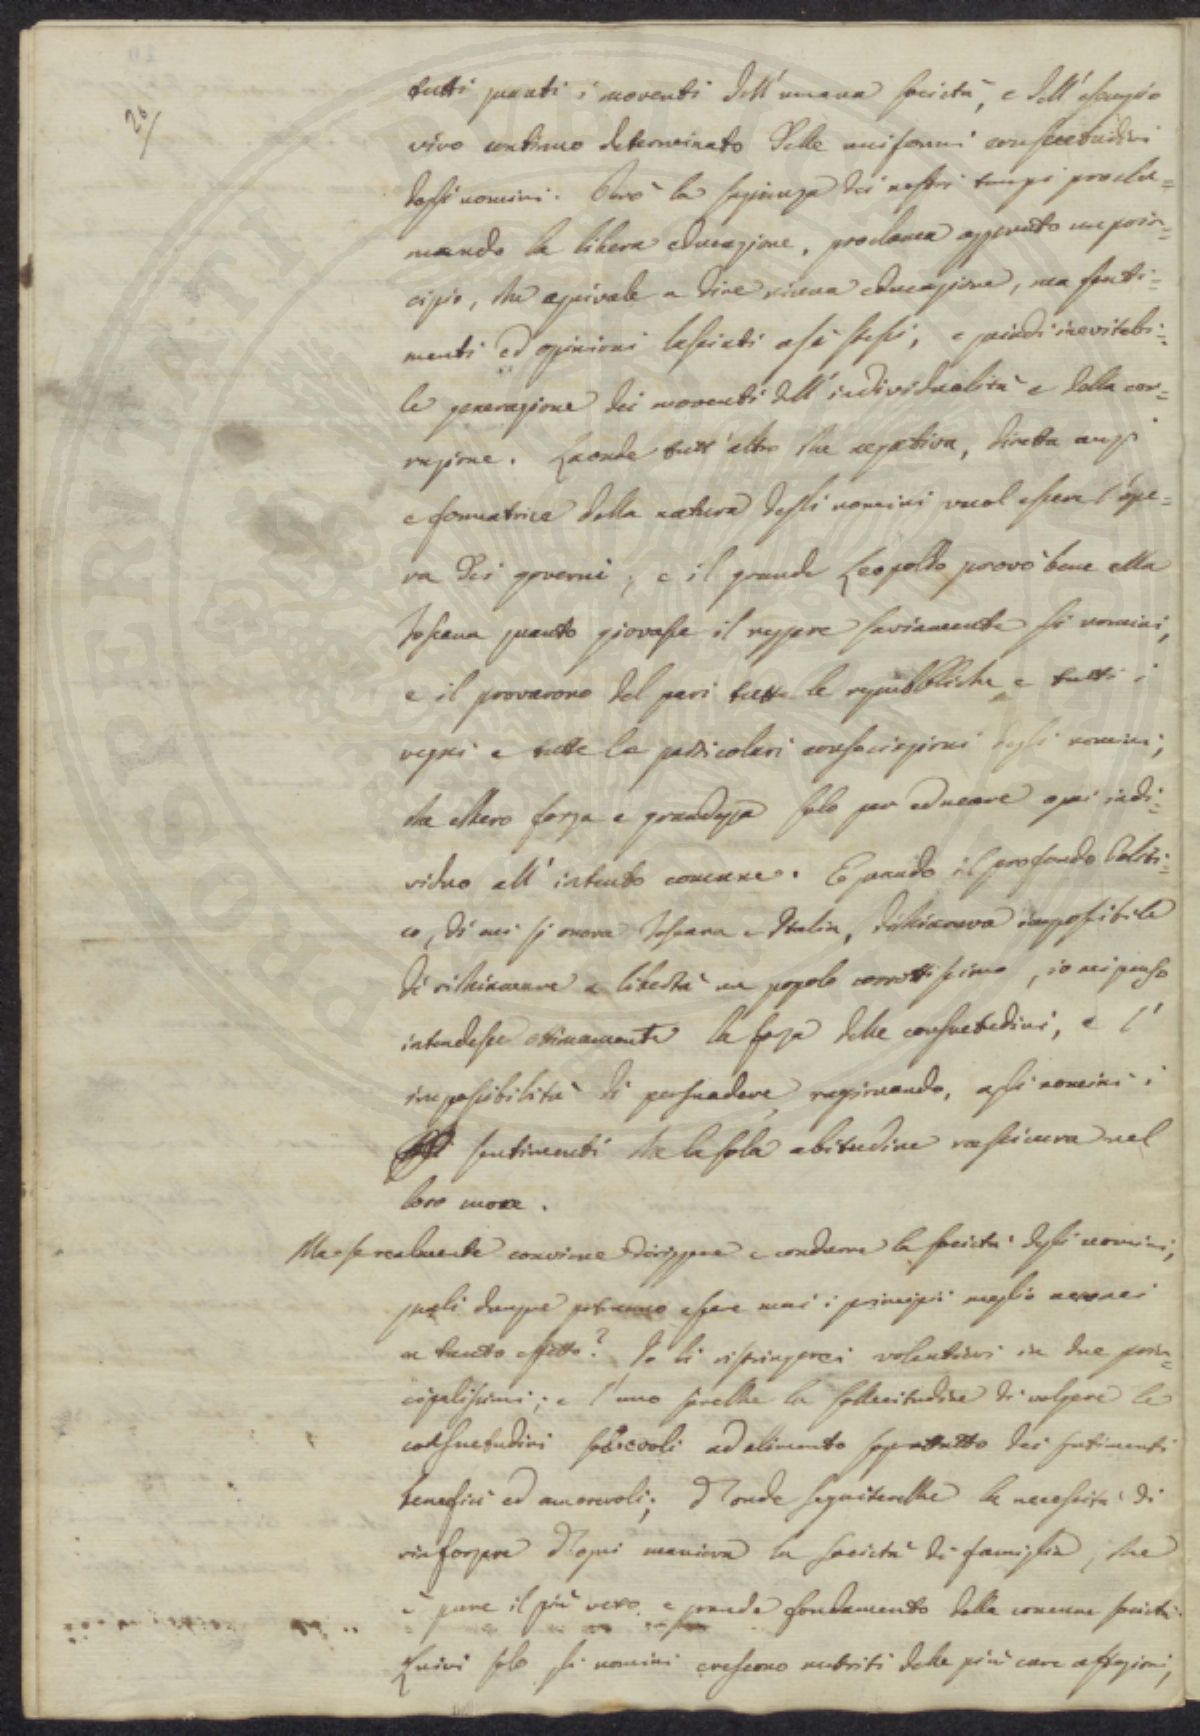 20/
tutti quanti i moventi dell'umana società, e dell'esempio
vivo continuo determinato delle uniformi consuetudini
degli uomini. Però la sapienza dei nostri tempi procla=
mando la libera educazione, proclama appunto un prin=
cipio, che equivale a dire niuna educazione, ma senti=
menti ed opinioni lasciati a sè stessi, e quindi inevitabi=
le generazione dei moventi dell'individualità e della cor=
ruzione. Laonde tutt'altro che negativa, diretta anzi
e formatrice della natura degli uomini vuol essere l'ope=
ra dei governi, e il grande Leopoldo provò bene alla
Toscana quanto giovasse il reggere saviamente gli uomini,
e il provarono del pari tutte le repubbliche e tutti i
regni e tutte le particolari consociazioni degli uomini,
che ebbero forza e grandezza solo per educare ogni indi=
viduo all'intento comune. E quando il profondo Politi=
co, di cui si onora Toscana e Italia, dichiarava impossibile
di richiamare a libertà un popolo corrottissimo, io mi penso
intendesse ottimamente la forza delle consuetudini, e l'
impossibilità di persuadere, ragionando, agli uomini i
sentimenti che la sola abitudine rassicura nel
loro cuore.
Ma se realmente conviene dirigere e condurre la società degli uomini,
quali dunque potranno essere mai i principii meglio acconci
a tanto effetto? Io li ristringerei volentieri in due prin=
cipalissimi; e l'uno sarebbe la sollecitudine di volgere le
consuetudini socievoli ad alimento soprattutto dei sentimenti
benefici ed amorevoli; d'onde seguiterebbe la necessità di
rinforzare d'ogni maniera la società di famiglia, che
è pure il più vero e grande fondamento della comune società.
Quivi solo gli uomini crescono nutriti delle più care affezioni,